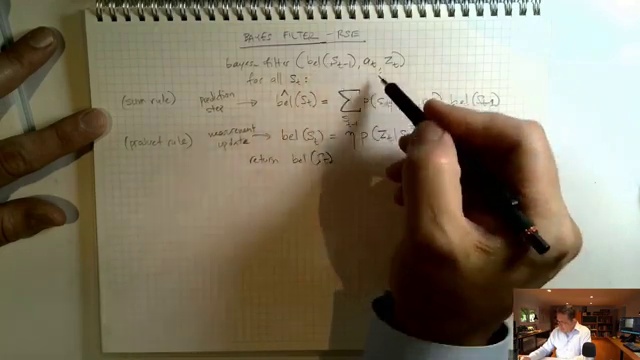 BAYES FILTER - RSE
bayes filter (bel(S_{t-1}), a_t, z_t)
for all S_t:
(sum rule) prediction step → b̂el(S_t) = ∑_{S_{t-1}} p(S_t bel(S_{t-1})
(product rule) measurement update → bel(S_t) = η p(z_t|S
return bel(S_t)